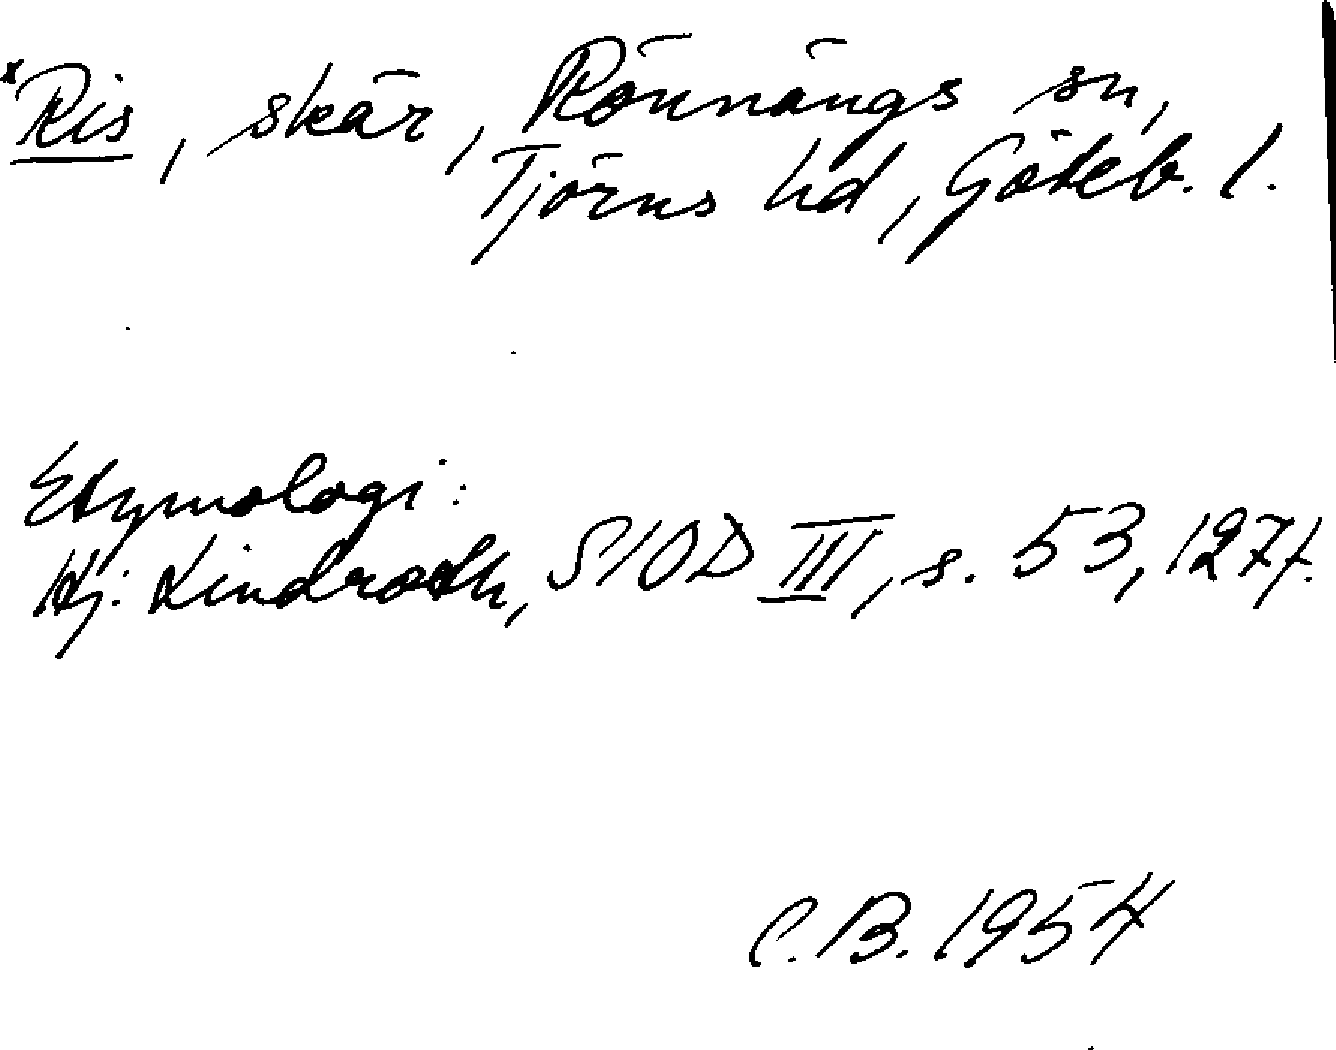 *Ris, skär, Rönnängs sn,
Tjörns hd, Göteb. l.
Etymologi:
Hj. Lindroth, SIOD III, s. 53, 127f.
C.B. 1954